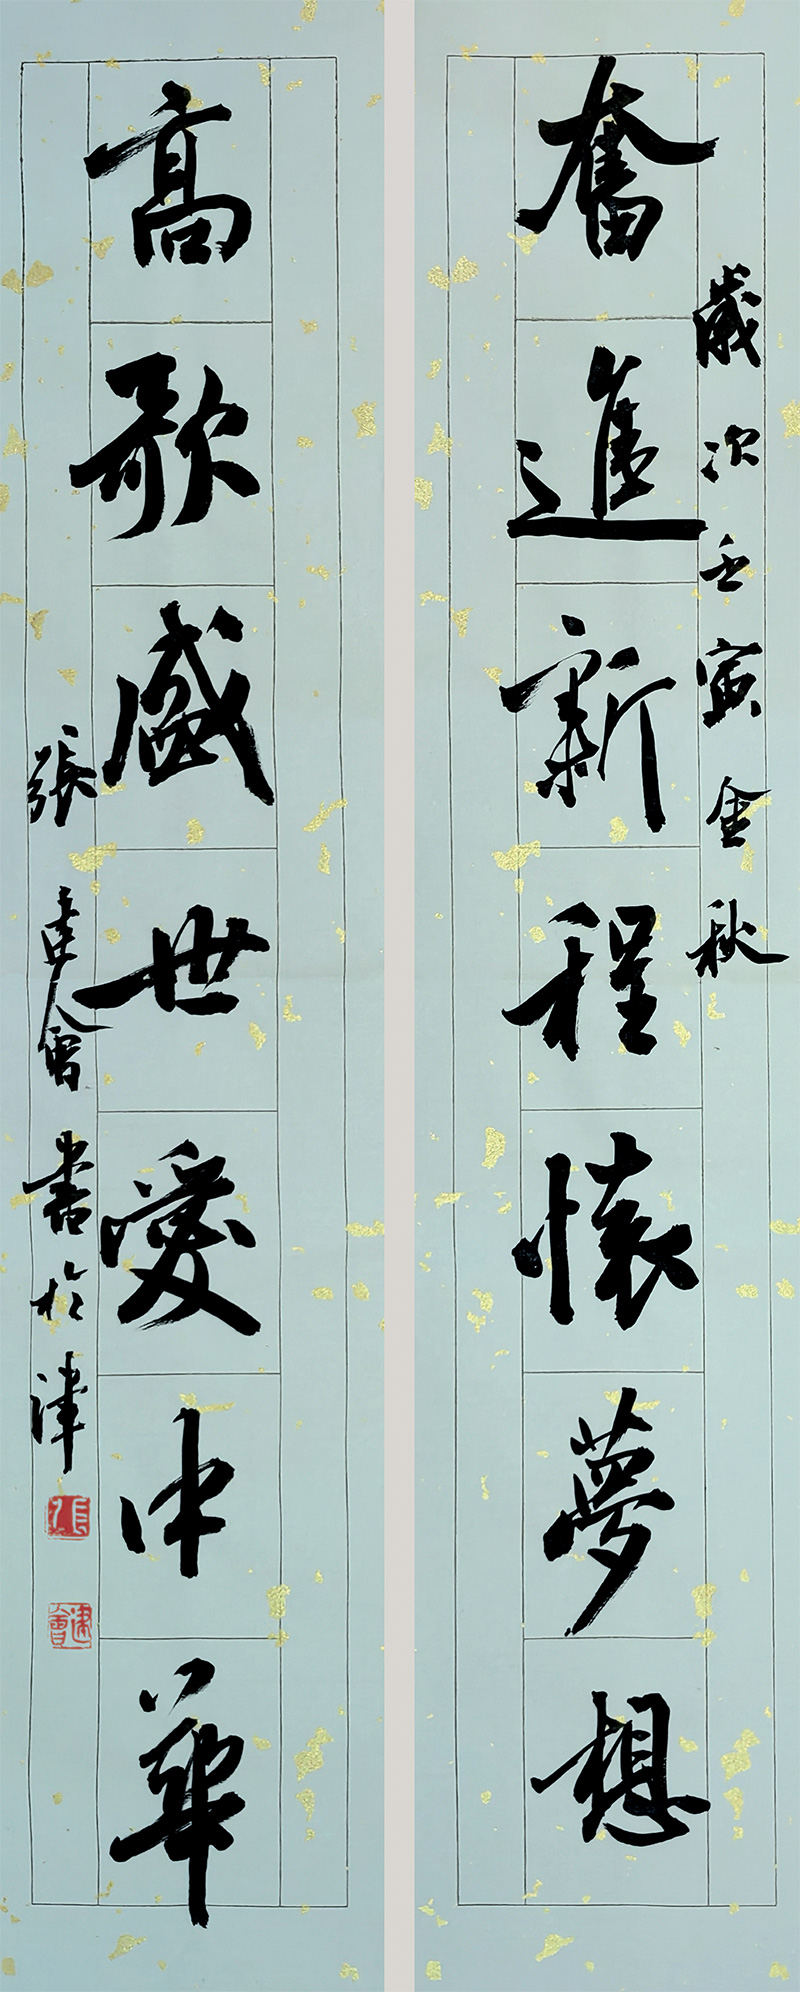 歲次壬寅金秋
奮進新程懷夢想
高歌盛世愛中華
張建會書於津
張
建會